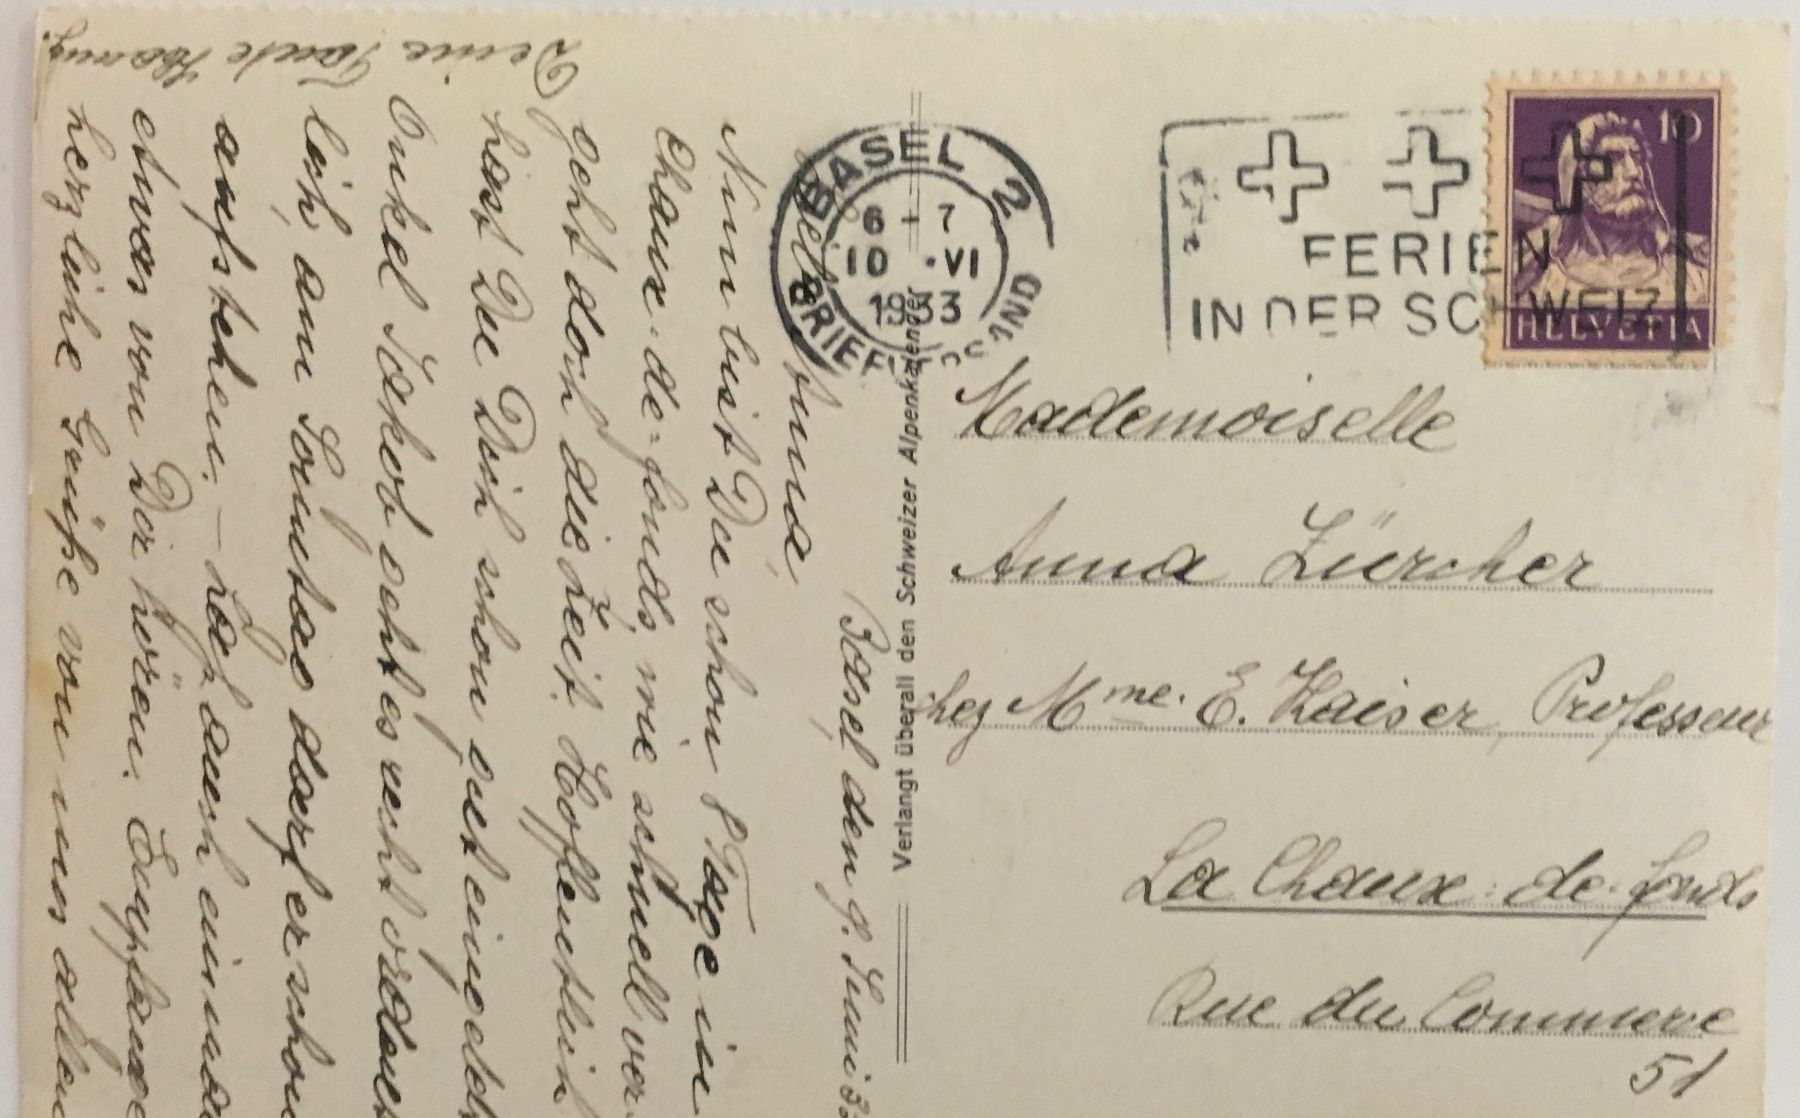 BASEL 2
6 - 7
10 · VI
1933
BRIEFVERSAND
FERIEN
IN DER SCHWEIZ
10
HELVETIA
Mademoiselle
Anna Zürcher
chez Mme. E. Kaiser, Professeur
La Chaux-de-fonds
Rue du Commerce
51
Verlangt überall den Schweizer Alpenkalender
Basel den 9. Juni 33
Anna,
Nun bist Du schon 8 Tage in
Chaux-de-fonds, wie schnell ver-
geht doch die Zeit. Hoffentlich
hast Du Dich schon gut eingelebt
Onkel Jakob geht es recht ordent
lich, am Sonntag darf er schon
aufstehen. – Lass auch einmal
etwas von Dir hören. Empfange
herzliche Grüße von uns allen
Deine Tante